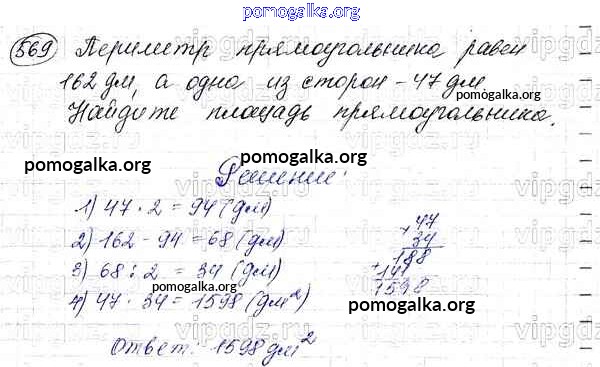 pomogalka.org
569 Периметр прямоугольника равен
162 дм, а одна из сторон - 47 дм
pomogalka.org
Найдите площадь прямоугольника.
pomogalka.org
pomogalka.org
Решение:
1) 47 · 2 = 94 (дм)
2) 162 - 94 = 68 (дм)
3) 68 : 2 = 34 (дм)
4) 47 · 34 = 1598 (дм²)
× 47
34
188
+ 141
1598
pomogalka.org
pomogalka.org
Ответ: 1598 дм²